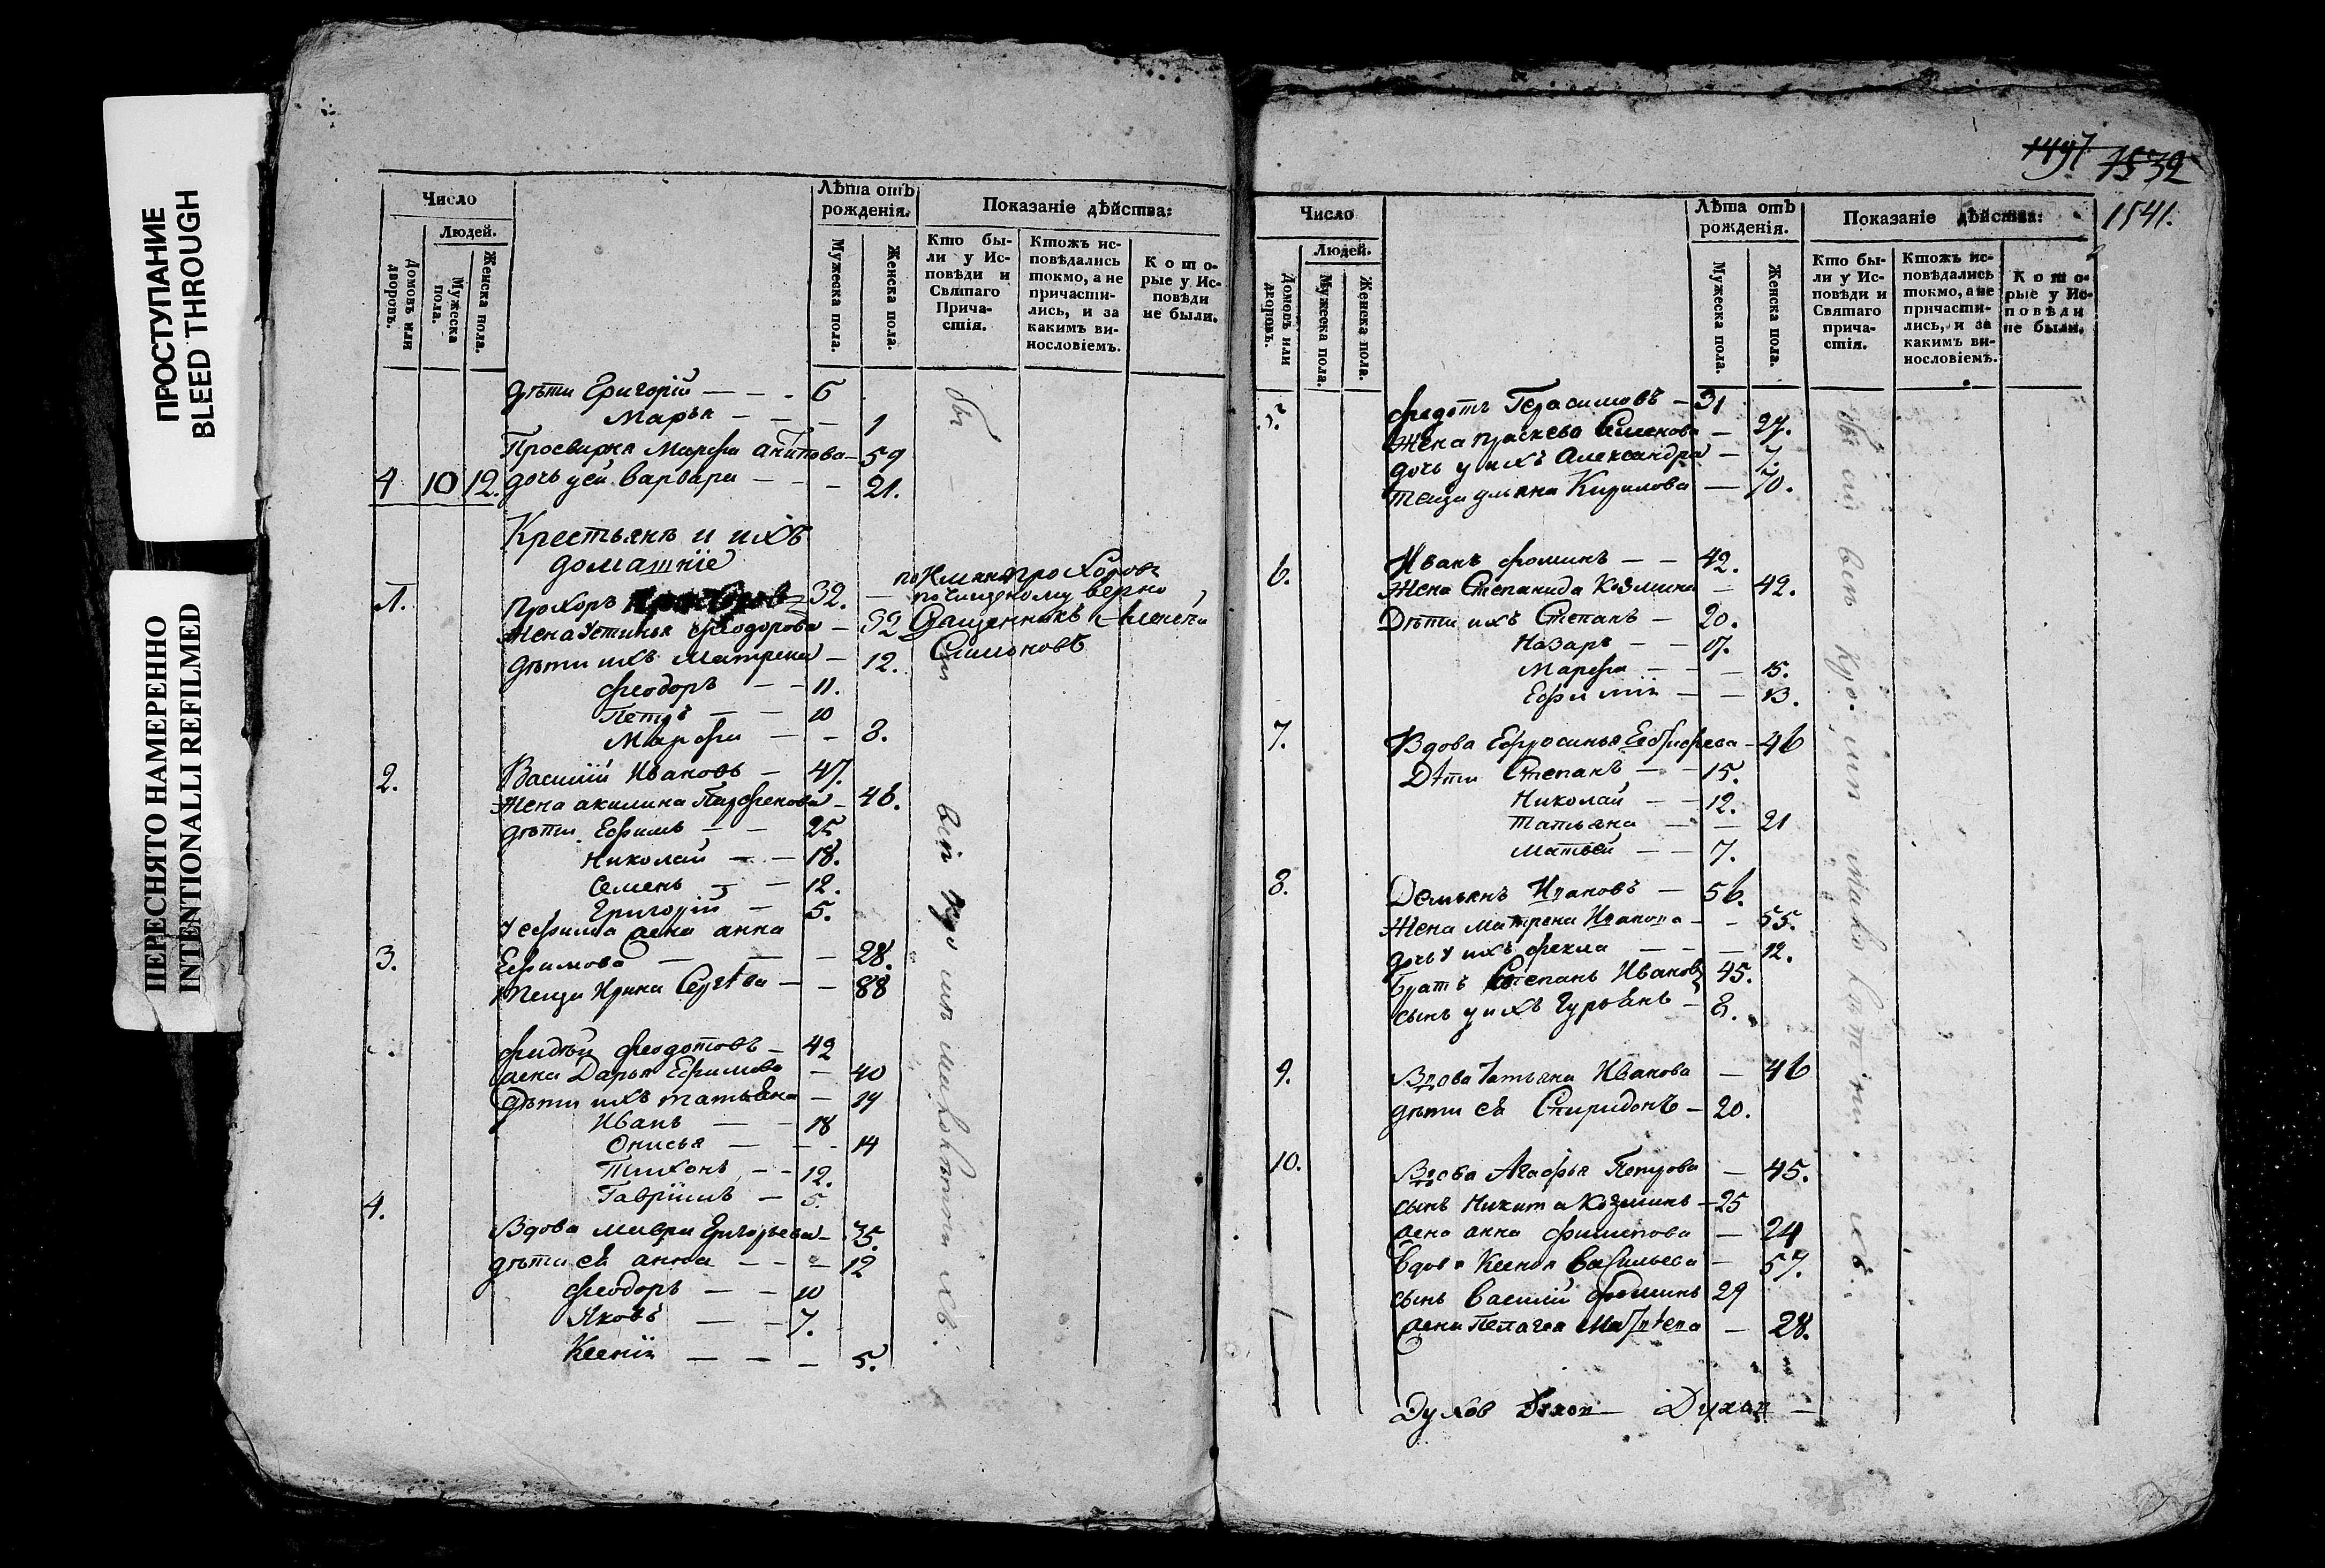 ПРОСТУПАНИЕ
BLEED THROUGH
ПЕРЕСНЯТО НАМЕРЕННО
INTENTIONALLI REFILMED
Число
Людей.
Домовъ или дворовъ.
Мужеска пола.
Женска пола.
Лѣта отъ рожденія.
Мужеска пола.
Женска пола.
Показаніе дѣйства:
Кто бы-
ли у Ис-
повѣди и
Святаго
Прича-
стія.
Ктожъ ис-
повѣдались
токмо, а не
причасти-
лись, и за
какимъ ви-
нословіемъ.
Кото-
рые у Ис-
повѣди
не были.
дѣти Григорій — 6
Марья — 1
Просвирня Марфа Антипова — 59
4 10 12. дочь у ей Варвара — 21.
Крестьянѣ и ихъ
домашніе
1. Прохоръ 32.
жена Устинья Феодорова — 32
Священникъ
Симоновъ
дѣти ихъ Матрена — 12.
Феодоръ — 11.
Петръ — 10
Марфа — 8.
2. Василій Ивановъ — 47.
жена акилина Парфенова — 46.
дѣти Ефимъ — 25
Николай — 18.
Семенъ — 12.
Григорій — 5.
У Ефима жена анна
3. Ефимова — 28.
теща Ирина Сергѣва — 88
Федотовъ — 42
жена Дарья Ефимова — 40
дѣти ихъ татьѣна — 19
Иванъ — 18
Онисья — 14
Тихонъ — 12.
Гавріилъ — 5.
4.
Вдова мавра Григорьева — 35.
дѣти еѣ анна — 12
Феодоръ — 10
Яковъ — 7.
Ксенія — 5.
1497 1532
1541.
Число
Людей.
Домовъ или дворовъ.
Мужеска пола.
Женска пола.
Лѣта отъ рожденія.
Мужеска пола.
Женска пола.
Показаніе дѣйства:
Кто бы-
ли у Ис-
повѣди и
Святаго
прича-
стія.
Ктожъ ис-
повѣдались
токмо, а не
причасти-
лись, и за
какимъ ви-
нословіемъ.
Кото-
рые у Ис-
повѣди
не были.
5. Федотъ Герасимовъ — 31
жена праскева Семенова — 27.
дочь у ихъ Александра — 7.
теща Кирилова — 70.
6. Иванъ Фоминъ — 42.
жена Степанида Козмина — 42.
Дѣти ихъ Степанъ — 20.
Назаръ — 17.
Марфа — 15.
Ефимія — 13.
7. Вдова Ефросинья — 46
Дѣти Степанъ — 15.
Николай — 12.
Татьяна — 21
Матвей — 7.
8. Демьянъ Ивановъ — 56.
жена Матрена Иванова — 55.
дочь у ихъ Фекла — 12.
братъ Степанъ Ивановъ 45.
сынъ у ихъ Гурьѣнъ — 8.
9. Вдова Татьяна Иванова — 46
дѣти еѣ Спиридонъ — 20.
10. Вдова Агафья Петрова — 45.
сынъ Никита Козминъ — 25
жена анна Филипова — 24
Вдова Ксенья Васильева — 57.
сынъ Василій Фоминъ 29
жена Пелагея — 28.